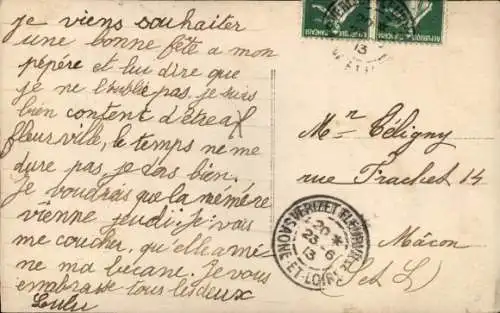 je viens souhaiter
une bonne fête a mon
pépère et lui dire que
je ne l'oublie pas. je suis
bien content d'être a
fleurville, le temps ne me
dure pas je dors bien.
Je voudrais que la mémère
vienne jeudi. je vais
me coucher, qu'elle amè-
ne ma becane. Je vous
embrasse tous les deux
Lulu
13
Mr Céligny
rue Frachet 14
Mâcon
(S et L)
VERIZET FLEURVILLE
20 *
23 - 6
13
SAONE-ET-LOIRE